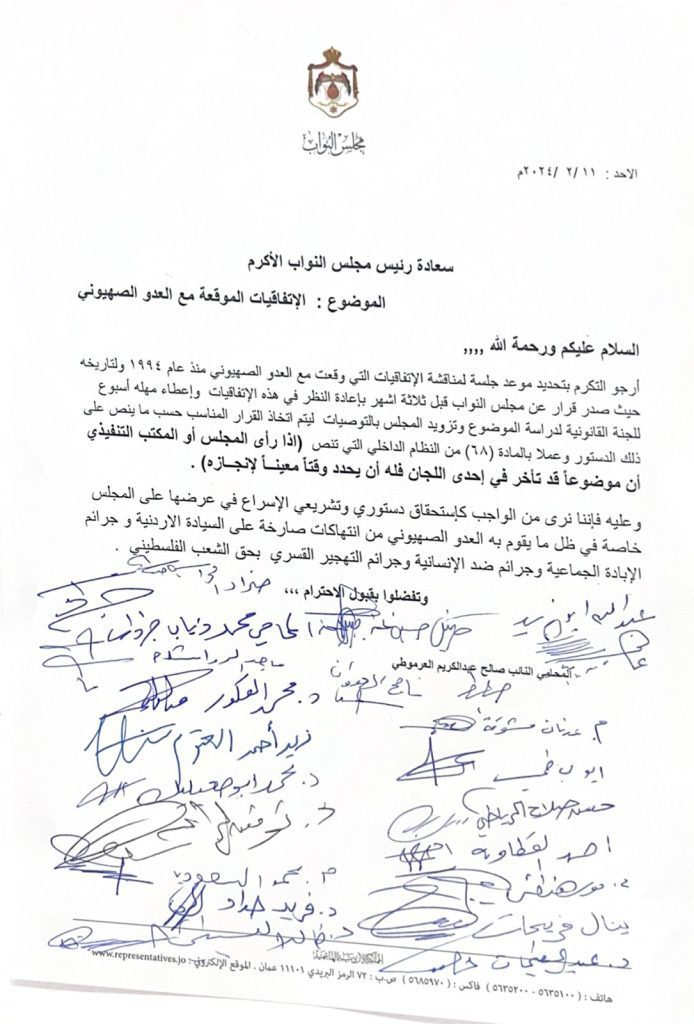 مجلس النواب
الاحد : ١١ /٢ /٢٠٢٤م
سعادة رئيس مجلس النواب الأكرم
الموضوع : الإتفاقيات الموقعة مع العدو الصهيوني
السلام عليكم ورحمة الله ,,,,
أرجو التكرم بتحديد موعد جلسة لمناقشة الإتفاقيات التي وقعت مع العدو الصهيوني منذ عام ١٩٩٤ ولتاريخه
حيث صدر قرار عن مجلس النواب قبل ثلاثة اشهر بإعادة النظر في هذه الإتفاقيات وإعطاء مهله أسبوع
للجنة القانونية لدراسة الموضوع وتزويد المجلس بالتوصيات ليتم اتخاذ القرار المناسب حسب ما ينص على
ذلك الدستور وعملا بالمادة (٦٨) من النظام الداخلي التي تنص (اذا رأى المجلس أو المكتب التنفيذي
أن موضوعاً قد تأخر في إحدى اللجان فله أن يحدد وقتاً معينـاً لإنجـازه) .
وعليه فإننا نرى من الواجب كإستحقاق دستوري وتشريعي الإسراع في عرضها على المجلس
خاصة في ظل ما يقوم به العدو الصهيوني من انتهاكات صارخة على السيادة الاردنية و جرائم
الإبادة الجماعية وجرائم ضد الإنسانية وجرائم التهجير القسري بحق الشعب الفلسطيني .
وتفضلوا بقبول الاحترام ,,,
المحامي محمد
المحامي النائب صالح عبدالكريم العرموطي
د. محمد العكور
م. عدنان مشوقة
زيد أحمد العتوم
ايوب خميس
د. محمد ابو صعيليك
احمد القطاونة
ينال فريحات
د. فريد حداد
المملكة الأردنية الهاشمية
هاتف : (٥٦٣٥١٠٠ - ٥٦٣٥٢٠٠) فاكس : (٥٦٨٥٩٧٠) ص.ب : ٧٢ الرمز البريدي ١١١٠١ عمان . الموقع الإلكتروني : www.representatives.jo